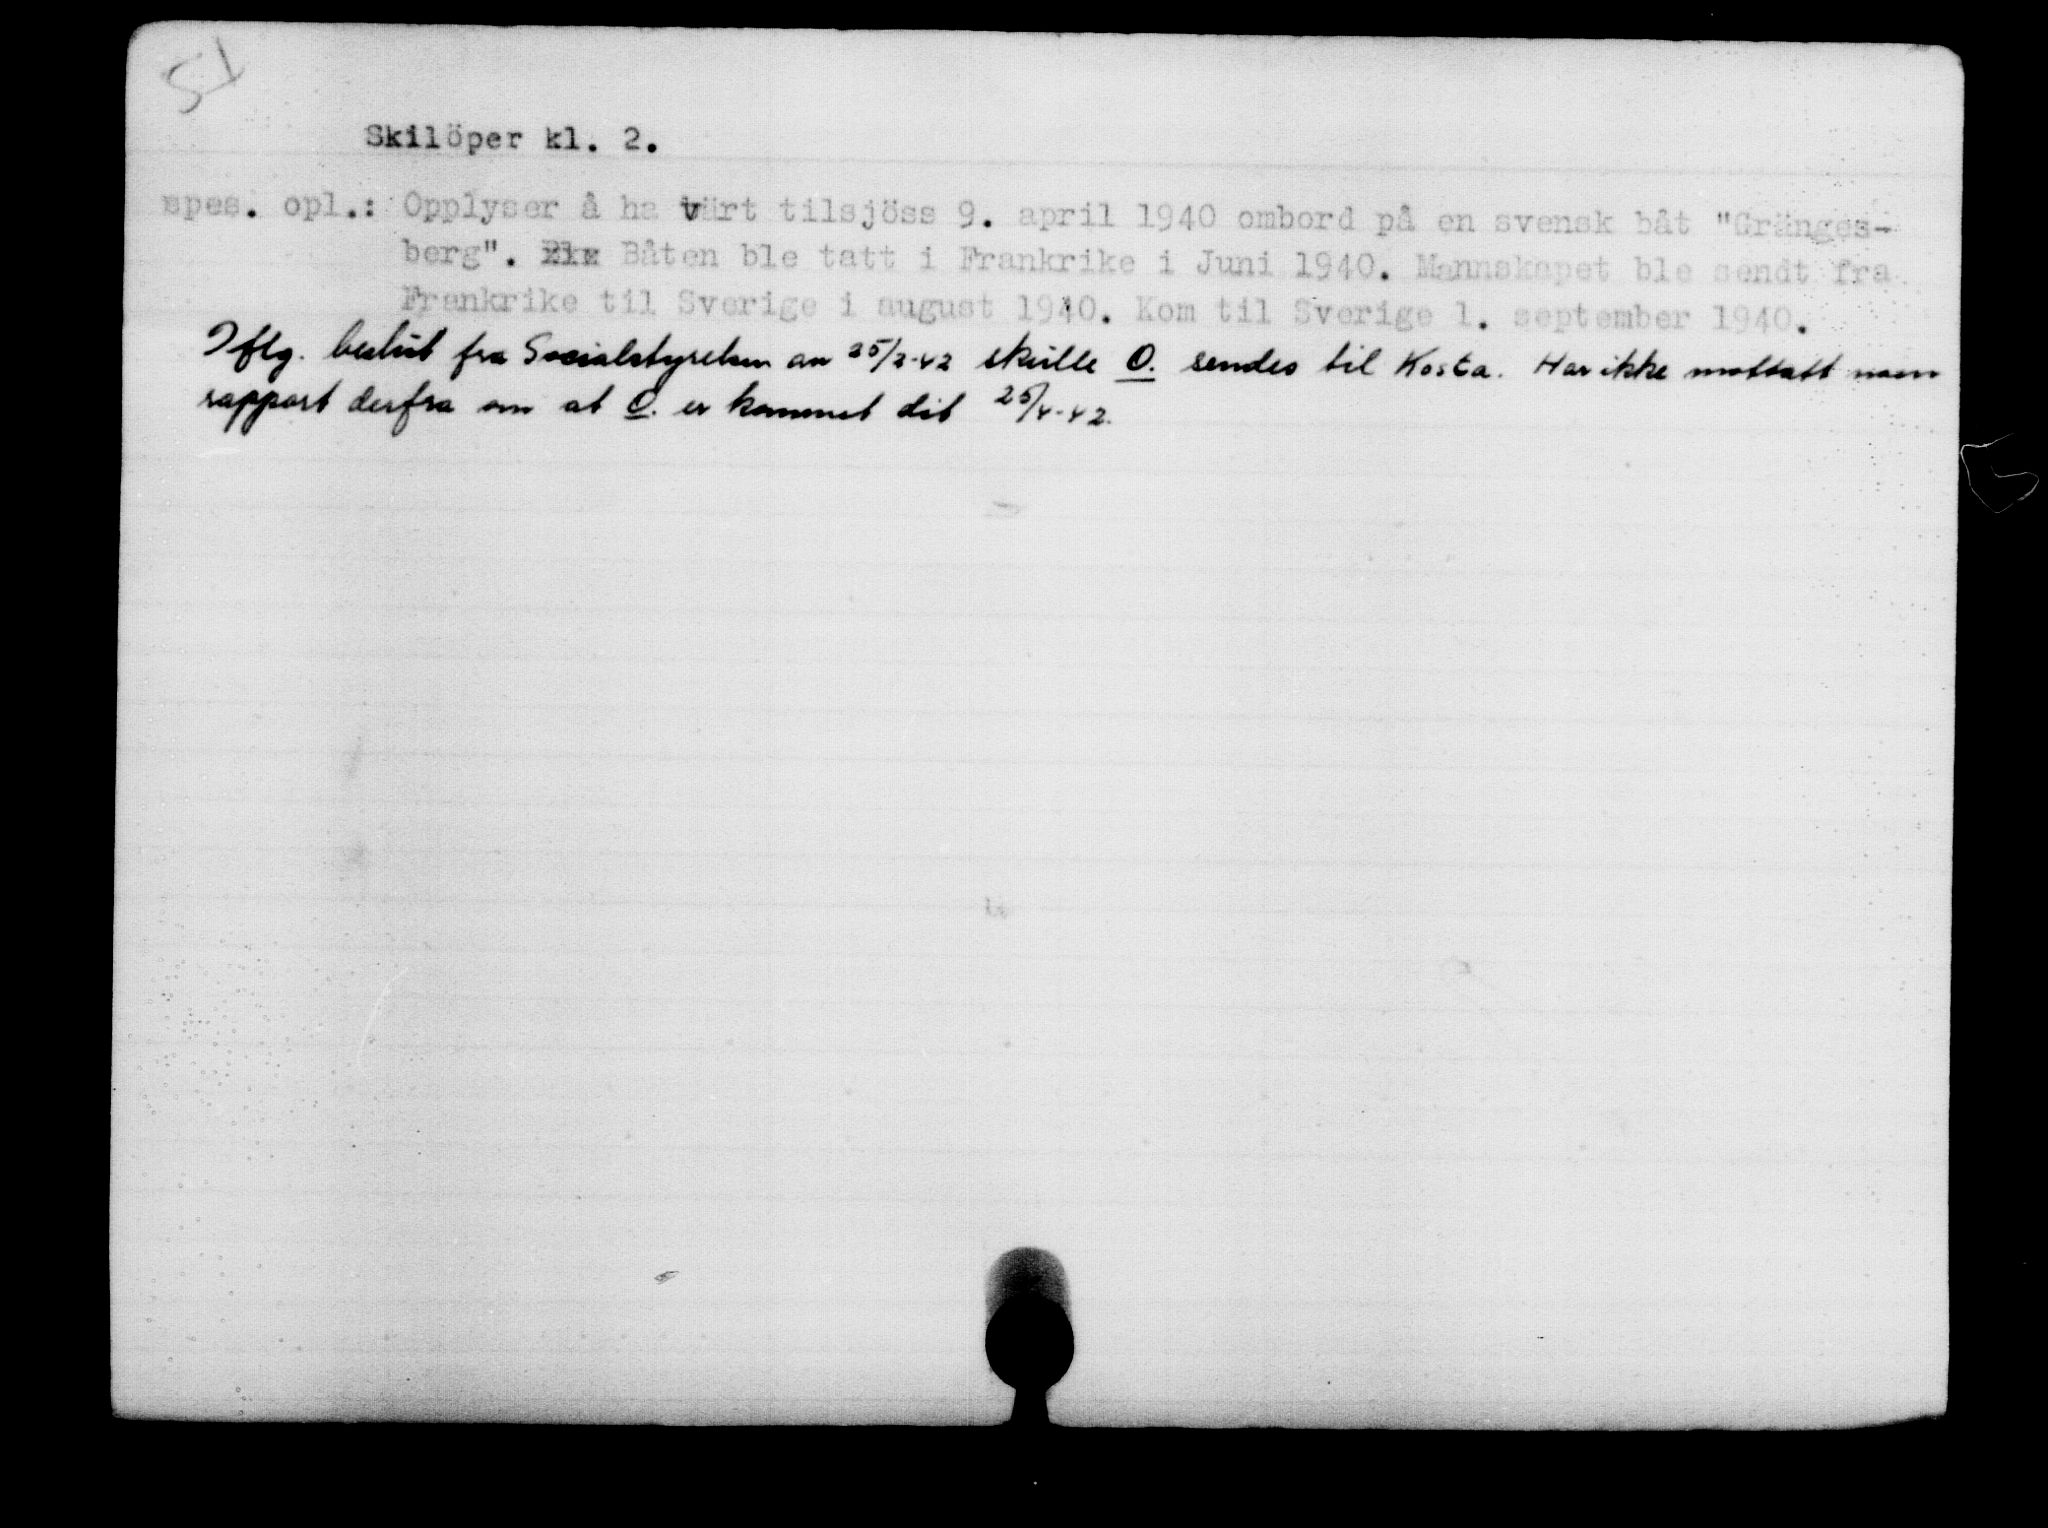 51
Skilöper kl. 2.
spes. opl.: Opplyser å ha värt tilsjöss 9. april 1940 ombord på en svensk båt "Gränges-
berg". Båten ble tatt i Frankrike i Juni 1940. Mannskapet ble sendt fra
Frankrike til Sverige i august 1940. Kom til Sverige 1. september 1940.
Iflg. beslut fra Socialstyrelsen av 25/2-42 skulle O. sendes til Kosta. Har ikke mottatt noen
rapport derfra om at O. er kommet dit 25/4-42.